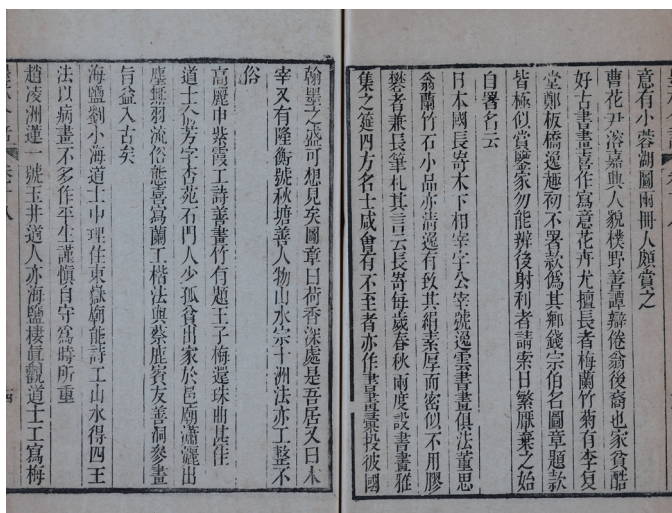 意有小蓉湖圖兩冊人頗賞之
曹花尹溶嘉興人貌樸野善譚辯倦翁後裔也家貧酷
好古書畫喜作寫意花卉尤擅長者梅蘭竹菊有李复
堂鄭板橋逸趣初不署款為其鄉錢宗伯名圖章題款
皆極似賞鑒家勿能辨後射利者請索日繁厭棄之始
自署名云
日本國長寄木下相宰字公宰號逸雲書畫俱法董思
翁蘭竹石小品亦清逸有致其絹素厚而密似不用膠
礬者兼長筆札其言云長寄每歲春秋兩度設書畫雅
集之筵四方名士咸會有不至者亦作書畫彙投彼國
翰墨之盛可想見矣圖章曰荷香深處是吾居又曰木
宰又有隆衡號秋塘善人物山水宗十洲法亦工整不
俗
高麗申紫霞工詩善畫竹有題王子梅還珠曲其住
道士仝芳字杏苑石門人少孤貧出家於邑廟瀟灑出
塵無羽流俗態喜寫蘭工楷法與蔡鹿賓友善洞參畫
旨益入古矣
海鹽劉小海道士中理住東嶽廟能詩工山水得四王
法以病畫不多作平生謹慎自守為時所重
趙凌洲蓮一號玉井道人亦海鹽棲真觀道士工寫梅